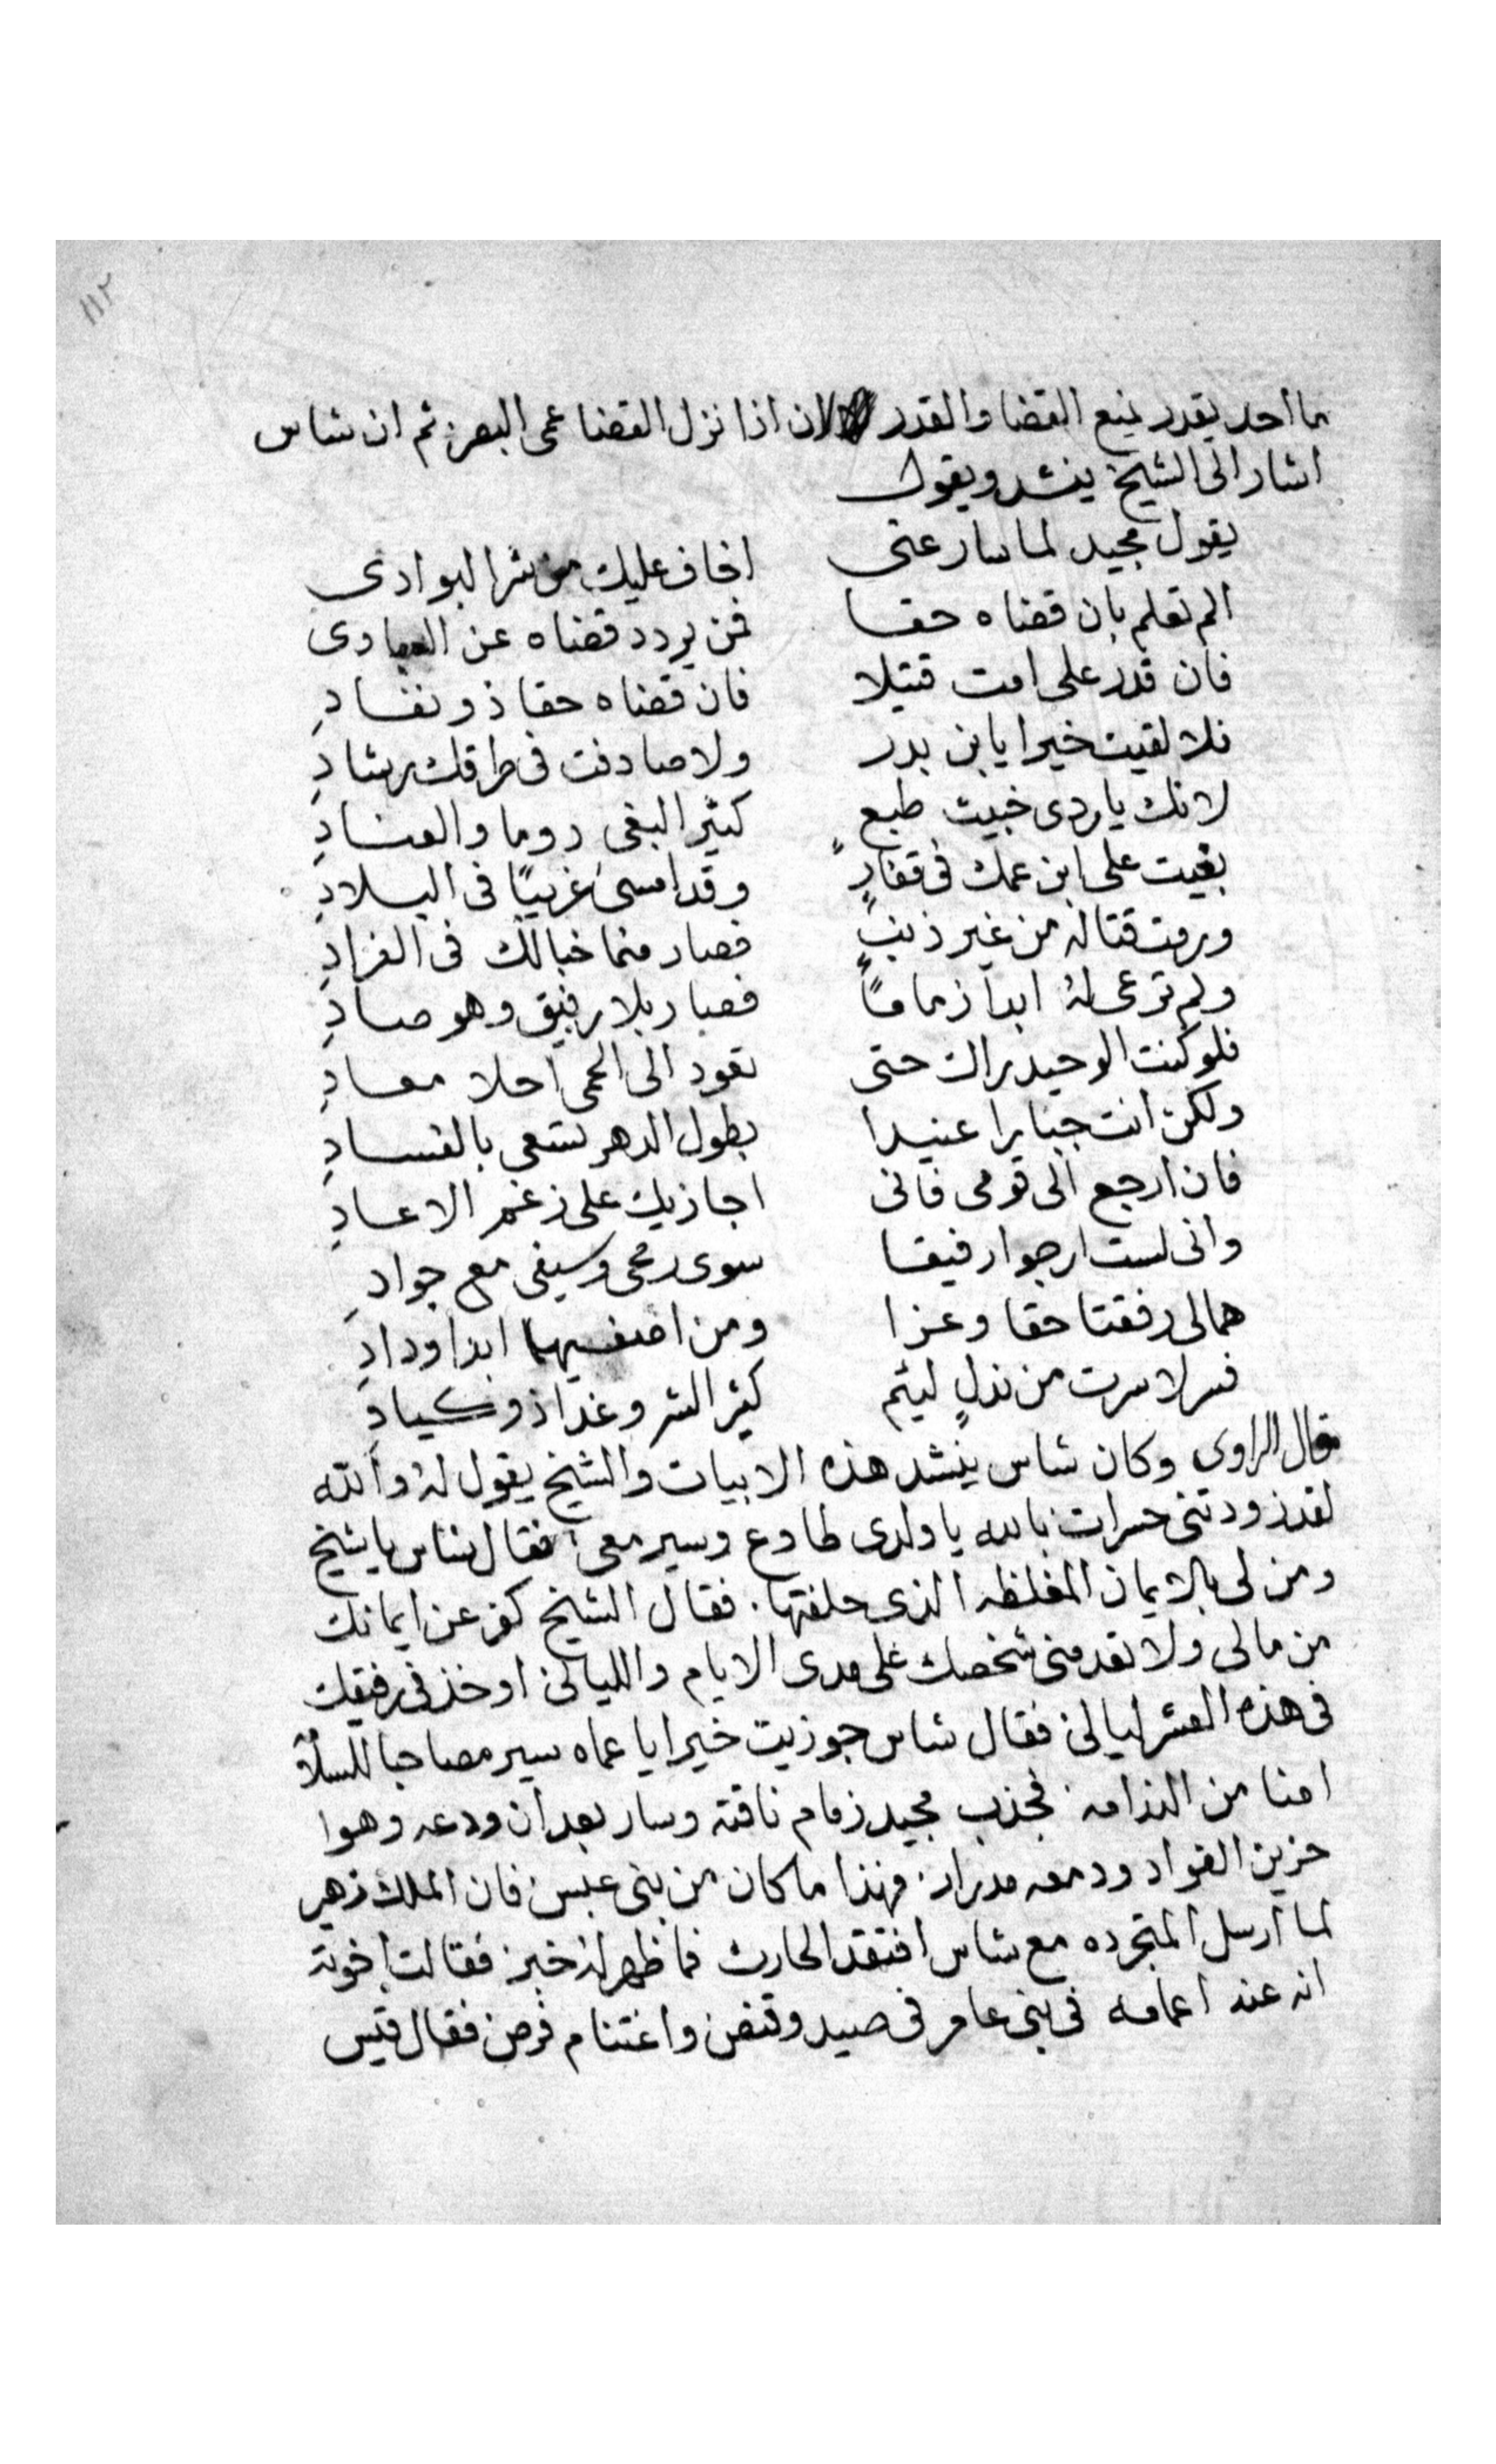 ١١٢
ما احد يقدر يمنع القضا والقدر لان اذا نزل القضا عمى البصر ثم ان شاس
اشار الى الشيخ ينشد ويقول
يقول مجيد لما سار عنى اخاف عليك من شر البوادى
الم تعلم بان قضاه حقا فمن يردد قضاه عن العبادى
فان قدر على امت قتيلا فان قضاه حقا ذو نفاد
فلا لقيت خيرا يا بن بدر ولا صادفت فى طرقك رشادِ
لانك يا ردى خبيث طبع كثير البغى دوما والعنادِ
بغيت على ابن عمك فى قفارٍ وقد امسى غريبًا فى البلادِ
ورمت قتاله من غير ذنبٍ فصار منما خبالك فى الفرادِ
ولم ترعى لهُ ابداً زمامًا فصار بلا رفيق وهو صادِ
فلو كنت الوحيد براك حتى تعود الى الحمى احلا معادِ
ولكن انت جبارا عنيدا بطول الدهر تسعى بالفسادِ
فان ارجع الى قومى فانى اجازيك على زغم الاعادِ
وانى لست ارجوا رفيقا سوى رمحى وسيفى مع جوادِ
هما لى رفقتا حقا وعزا ومن اصفيهما ابدا ودادِ
فسر لا سرت من نذلٍ ليئم كثير الشر وغدا ذو كيادِ
قال الراوى وكان شاس ينشد هذه الابيات والشيخ يقول لهُ والله
لقد زودتنى حسرات بالله يا ولدى طاوع وسير معى فقال شاس يا شيخ
ومن لى بالايمان المغلظه الذى حلفتها. فقال الشيخ كفر عن ايمانك
من مالى ولا تعدمنى شخصك على مدى الايام والليالى او خذ فى رفيقك
فى هذه العشر ليالى فقال شاس جوزيت خيرا يا عماه سير مصاحبا للسلاً
امنا من الندامه فجذب مجيد زمام ناقته وسار بعد ان ودعه وهوا
حزين الفواد ودمعه مدرار. فهذا ما كان من بنى عبس فان الملك زهير
لما ارسل المتجرده مع شاس افتقد الحارث فما ظهر له خبر فقالت اخوته
انه عند اعمامه فى بنى عامر فى صيد وقنص واغتنام فرص فقال قيس